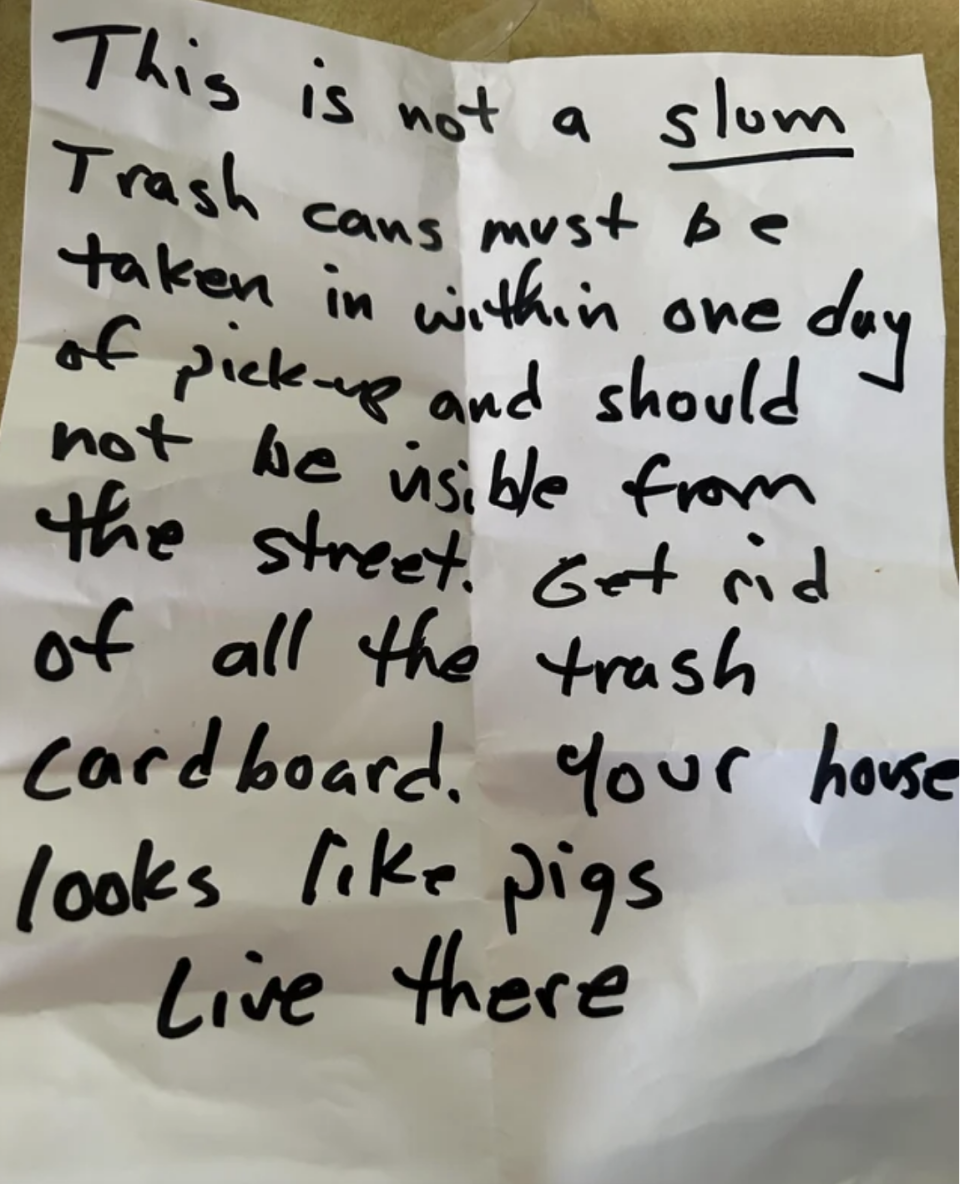 This is not a slum
Trash cans must be
taken in within one day
of pick-up and should
not be visible from
the street. Get rid
of all the trash
cardboard. Your house
looks like pigs
Live there